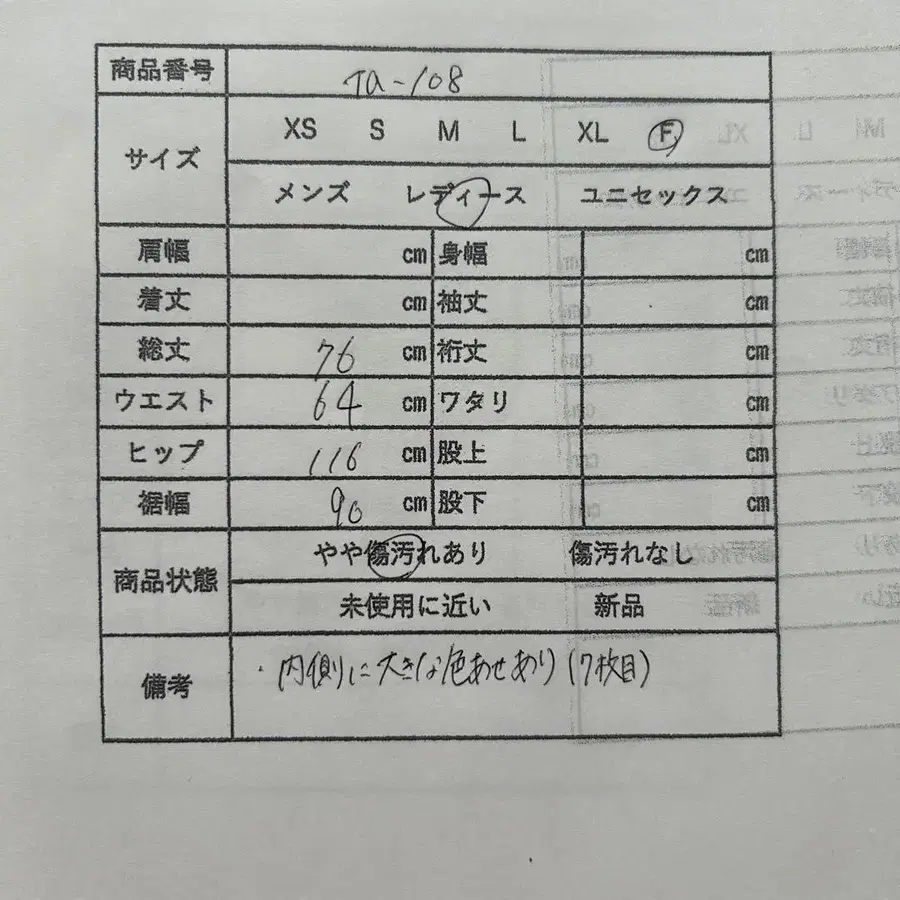 商品番号 TA-108
サイズ XS S M L XL F
メンズ レディース ユニセックス
肩幅 cm 身幅 cm
着丈 cm 袖丈 cm
総丈 76 cm 裄丈 cm
ウエスト 64 cm ワタリ cm
ヒップ 116 cm 股上 cm
裾幅 90 cm 股下 cm
商品状態 やや傷汚れあり 傷汚れなし
未使用に近い 新品
備考 ・内側に大きな色あせあり(7枚目)